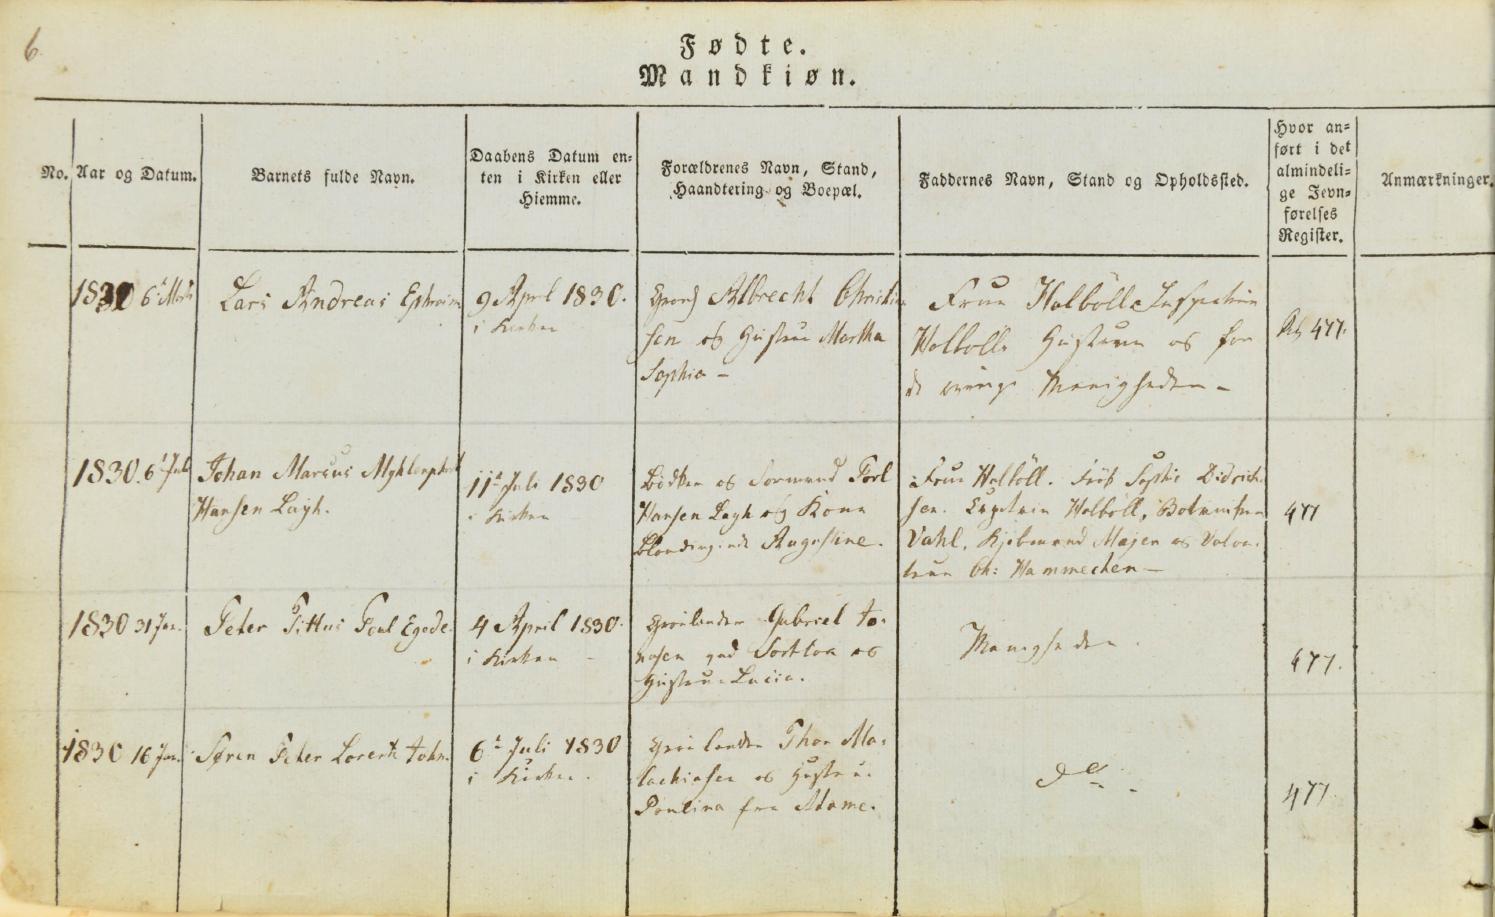 6.
Fødte.
Mandkiøn.
No.
Aar og Datum.
Barnets fulde Navn.
Daabens Datum en-
ten i Kirken eller
Hiemme.
Forældrenes Navn, Stand,
Haandtering og Boepæl.
Faddernes Navn, Stand og Opholdssted.
Hvor an-
ført i det
almindeli-
ge Jevn-
førelses
Register.
Anmærkninger.
1830 6t Marts
Lars Andreas Ephraim
9 Aprl 1830.
i Kirken
Albrecht Christian
sen og Hustrue Martha
Sophia -
Frue Holbölle Inspecteur
Holbölls Hustrue og for
de øvrige Menigheden -
477.
1830. 6t Juli
Johan Marcus
Hansen Lygh.
11t Juli 1830
i Kirken
Bödker og Formand Carl
Hansen Lygh og Kone
Augustine.
Frue Holböll. Sophie Didrich-
sen. Capitain Holböll, Botanikeren
Vahl, Kjöbmand Majer og
Ch: Hammeken -
477
1830 31 Jan.
Peter Tittus Poul Egede.
4 April 1830.
i Kirken -
Grönlænder Gabriel Jo-
nasen ved og
Hustrue Lucia.
Menigheden.
477.
1830 16 Jan.
Søren Peter Lorentz John.
6t Juli 1830
i Kirken.
Grönlænder Thor Ma-
lachiasen og Hustrue
Paulina fra
do -
477